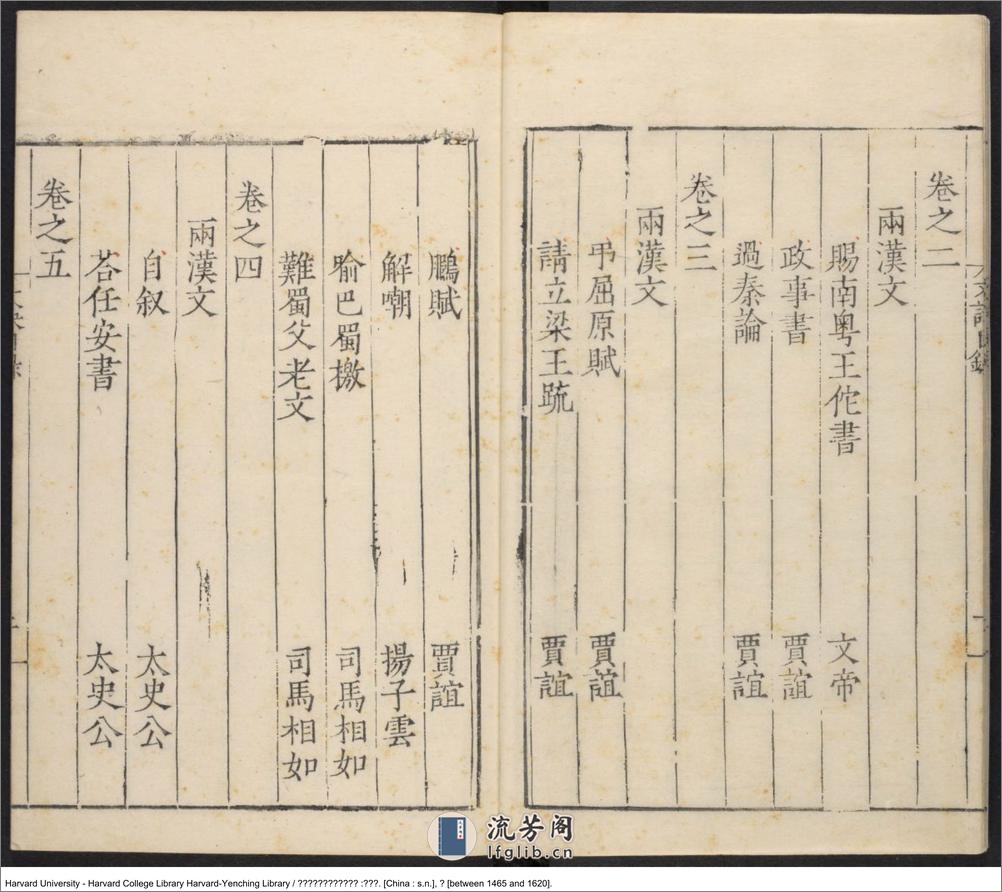 卷之二
兩漢文
賜南粵王佗書 文帝
政事書 賈誼
過秦論 賈誼
卷之三
兩漢文
弔屈原賦 賈誼
請立梁王䟽 賈誼
鵩賦 賈誼
解嘲 揚子雲
喻巴蜀檄 司馬相如
難蜀父老文 司馬相如
卷之四
兩漢文
自叙 太史公
荅任安書 太史公
卷之五
流芳阁
lfglib.cn
Harvard University - Harvard College Library Harvard-Yenching Library / ???????????? :???. [China : s.n.], ? [between 1465 and 1620].